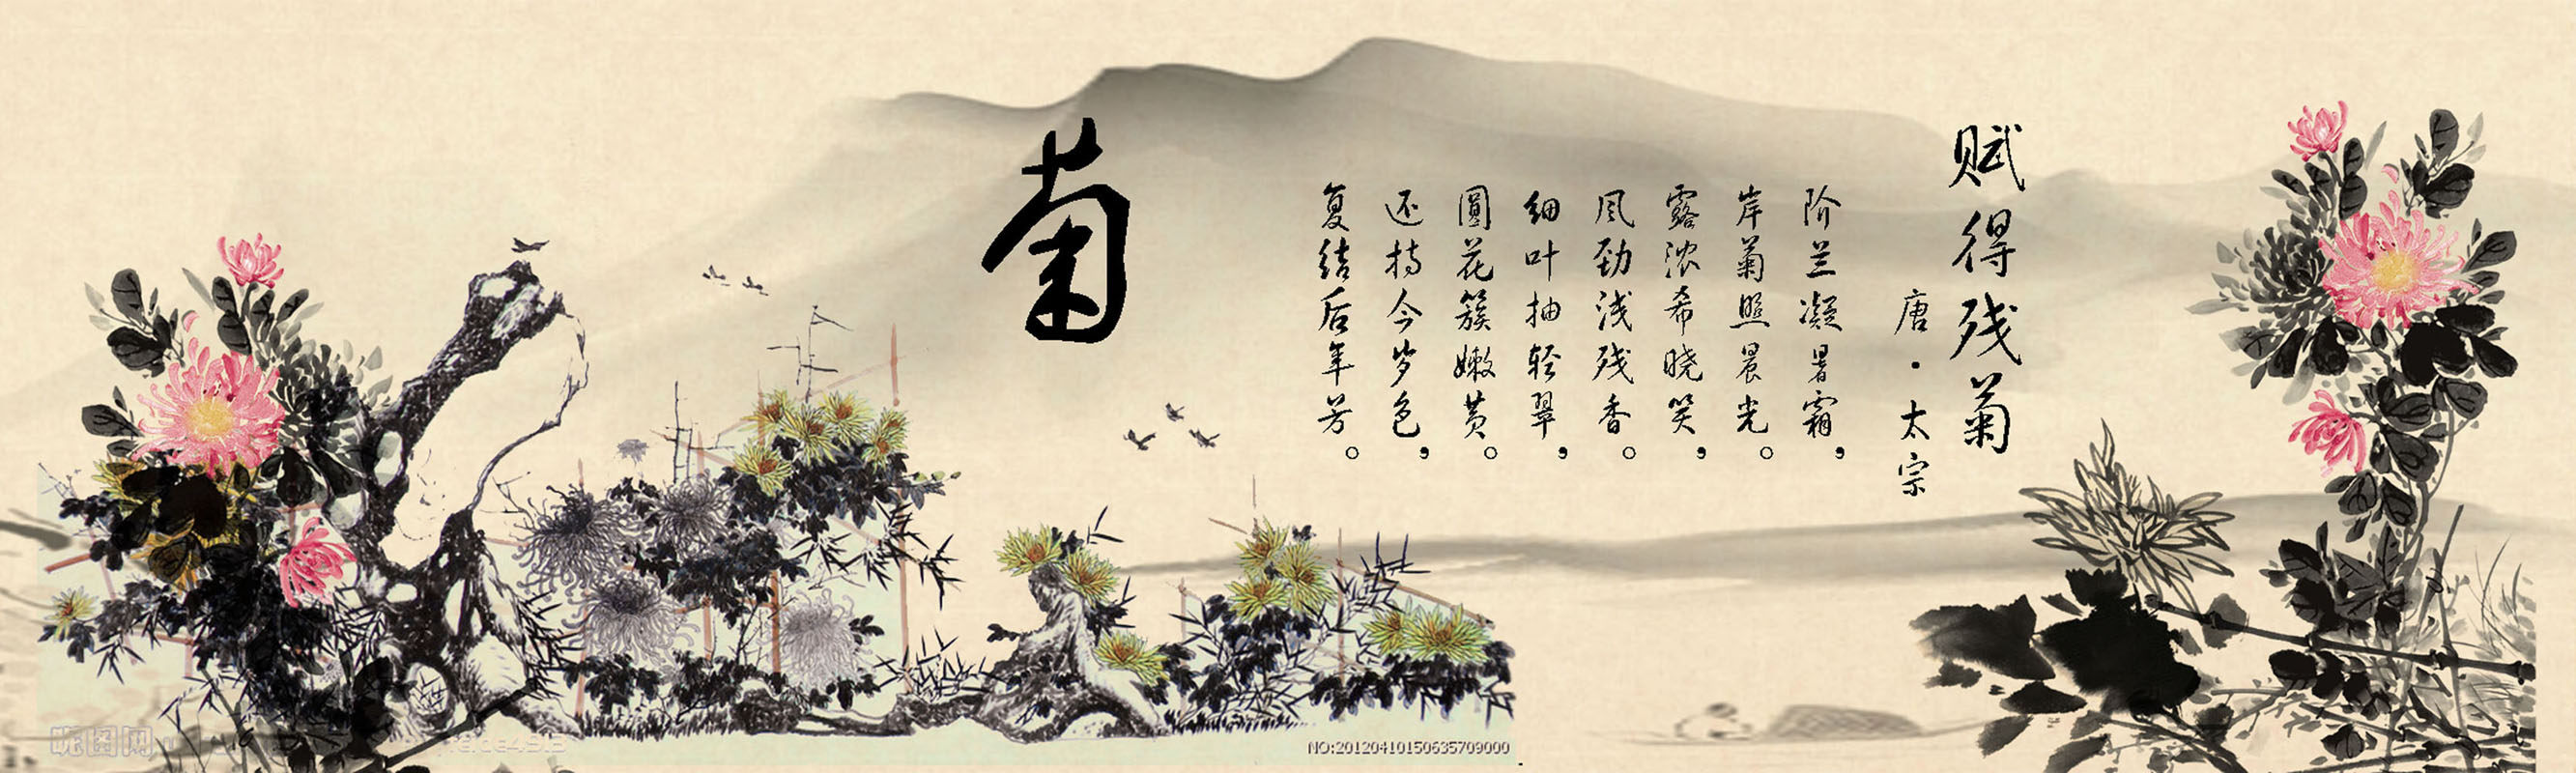 赋得残菊
唐·太宗
阶兰凝暑霜，
岸菊照晨光。
露浓希晓笑，
风劲浅残香。
细叶抽轻翠，
圆花簇嫩黄。
还持今岁色，
复结后年芳。
菊
昵图网
NO:20120410150635709000